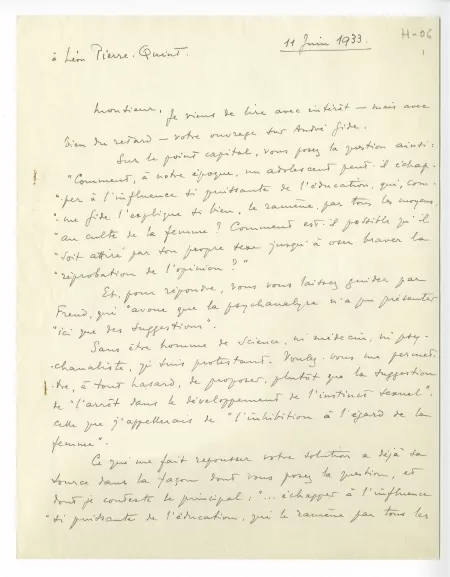 11 Juin 1933.
H-06
1
à Léon Pierre-Quint.
Monsieur, Je viens de lire avec intérêt — mais avec
bien du retard — votre ouvrage sur André Gide.
Sur le point capital, vous posez la question ainsi:
"Comment, à notre époque, un adolescent peut-il échap-
"per à l'influence si puissante de l'éducation, qui, com-
"me Gide l'explique si bien, le ramène, par tous les moyens,
"au culte de la femme? Comment est-il possible qu'il
"soit attiré par son propre sexe jusqu'à oser braver la
"réprobation de l'opinion?"
Et, pour répondre, vous vous laissez guider par
Freud, qui "avoue que la psychanalyse n'a pu présenter
"ici que des suggestions".
Sans être homme de science, ni médecin, ni psy-
-chanaliste, je suis protestant. Voulez-vous me permet-
-tre, à tout hasard, de proposer, plutôt que la suggestion
de "l'arrêt dans le développement de l'instinct sexuel",
celle que j'appellerais de "l'inhibition à l'égard de la
femme".
Ce qui me fait repousser votre solution a déjà sa
source dans la façon dont vous posez la question, et
dont je conteste le principal: "... échapper à l'influence
"si puissante de l'éducation, qui le ramène par tous les